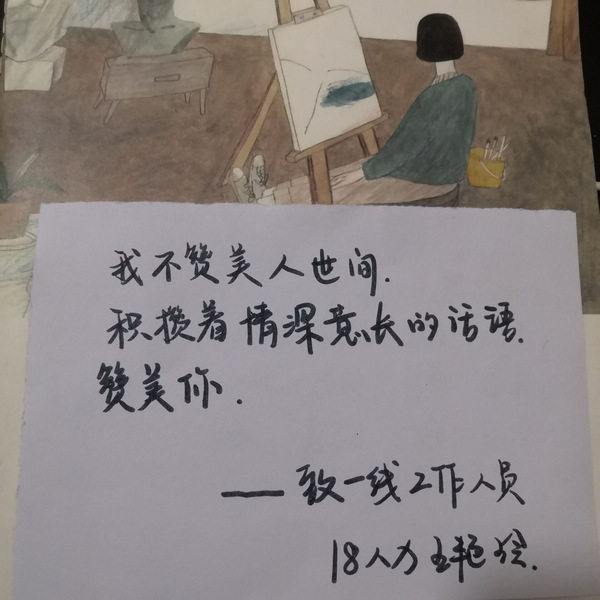 我不赞美人世间.
积攒着情深意长的话语.
赞美你.
——致一线工作人员
18人力